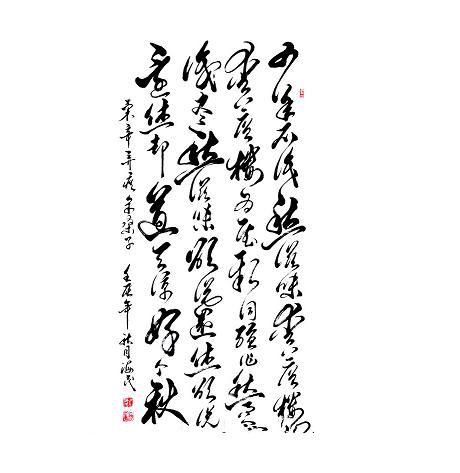 少年不识愁滋味爱上层楼
爱上层楼为赋新词强说愁而今
识尽愁滋味欲说还休欲说
还休却道天凉好个秋
辛弃疾采桑子 壬辰年秋月海民